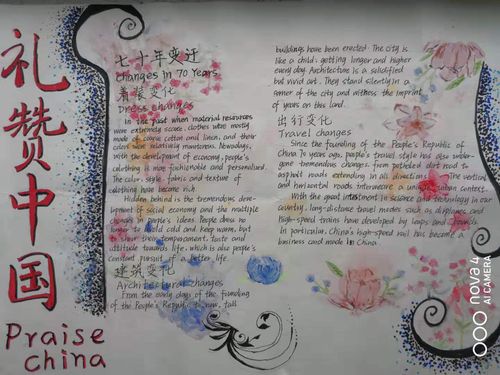 礼赞中国
Praise
China
七十年变迁
Changes in 70 Years
着装变化
Dress changes
In the past when material resources
were extremely scarce, clothes were mostly
made of coarse cotton and linen, and their
colors were relatively monotonous. Nowadays,
with the development of economy, people's
clothing is more fashionable and personalised.
The color, style, fabric and texture of
clothing have become rich.
Hidden behind is the tremendous deve-
lopment of social economy and the multiple
changes in people's ideas. People dress no
longer to hold cold and keep warm, but
to show their temperament, taste and
attitude towards life, which is also people's
constant pursuit of a better life.
建筑变化
Architectural changes
From the early days of the founding
of the People's Republic to now, tall
buildings have been erected. The city is
like a child, getting longer and higher
every day. Architecture is a solidified
but vivid art. They stand silently in a
corner of the city and witness the imprint
of years on this land.
出行变化
Travel changes
Since the founding of the People's Republic of
China 70 years ago, people's travel style has also under-
gone tremendous changes, from potholed dirt road to
asphalt roads extending in all directions. The vertical
and horizontal roads interweave a urban context.
With the great investment in science and technology in our
country, long-distance travel modes such as airplanes and
high-speed trains have developed by leaps and bounds.
In particular, China's high-speed rail has become a
business card made in China.
nova 4
AI CAMERA